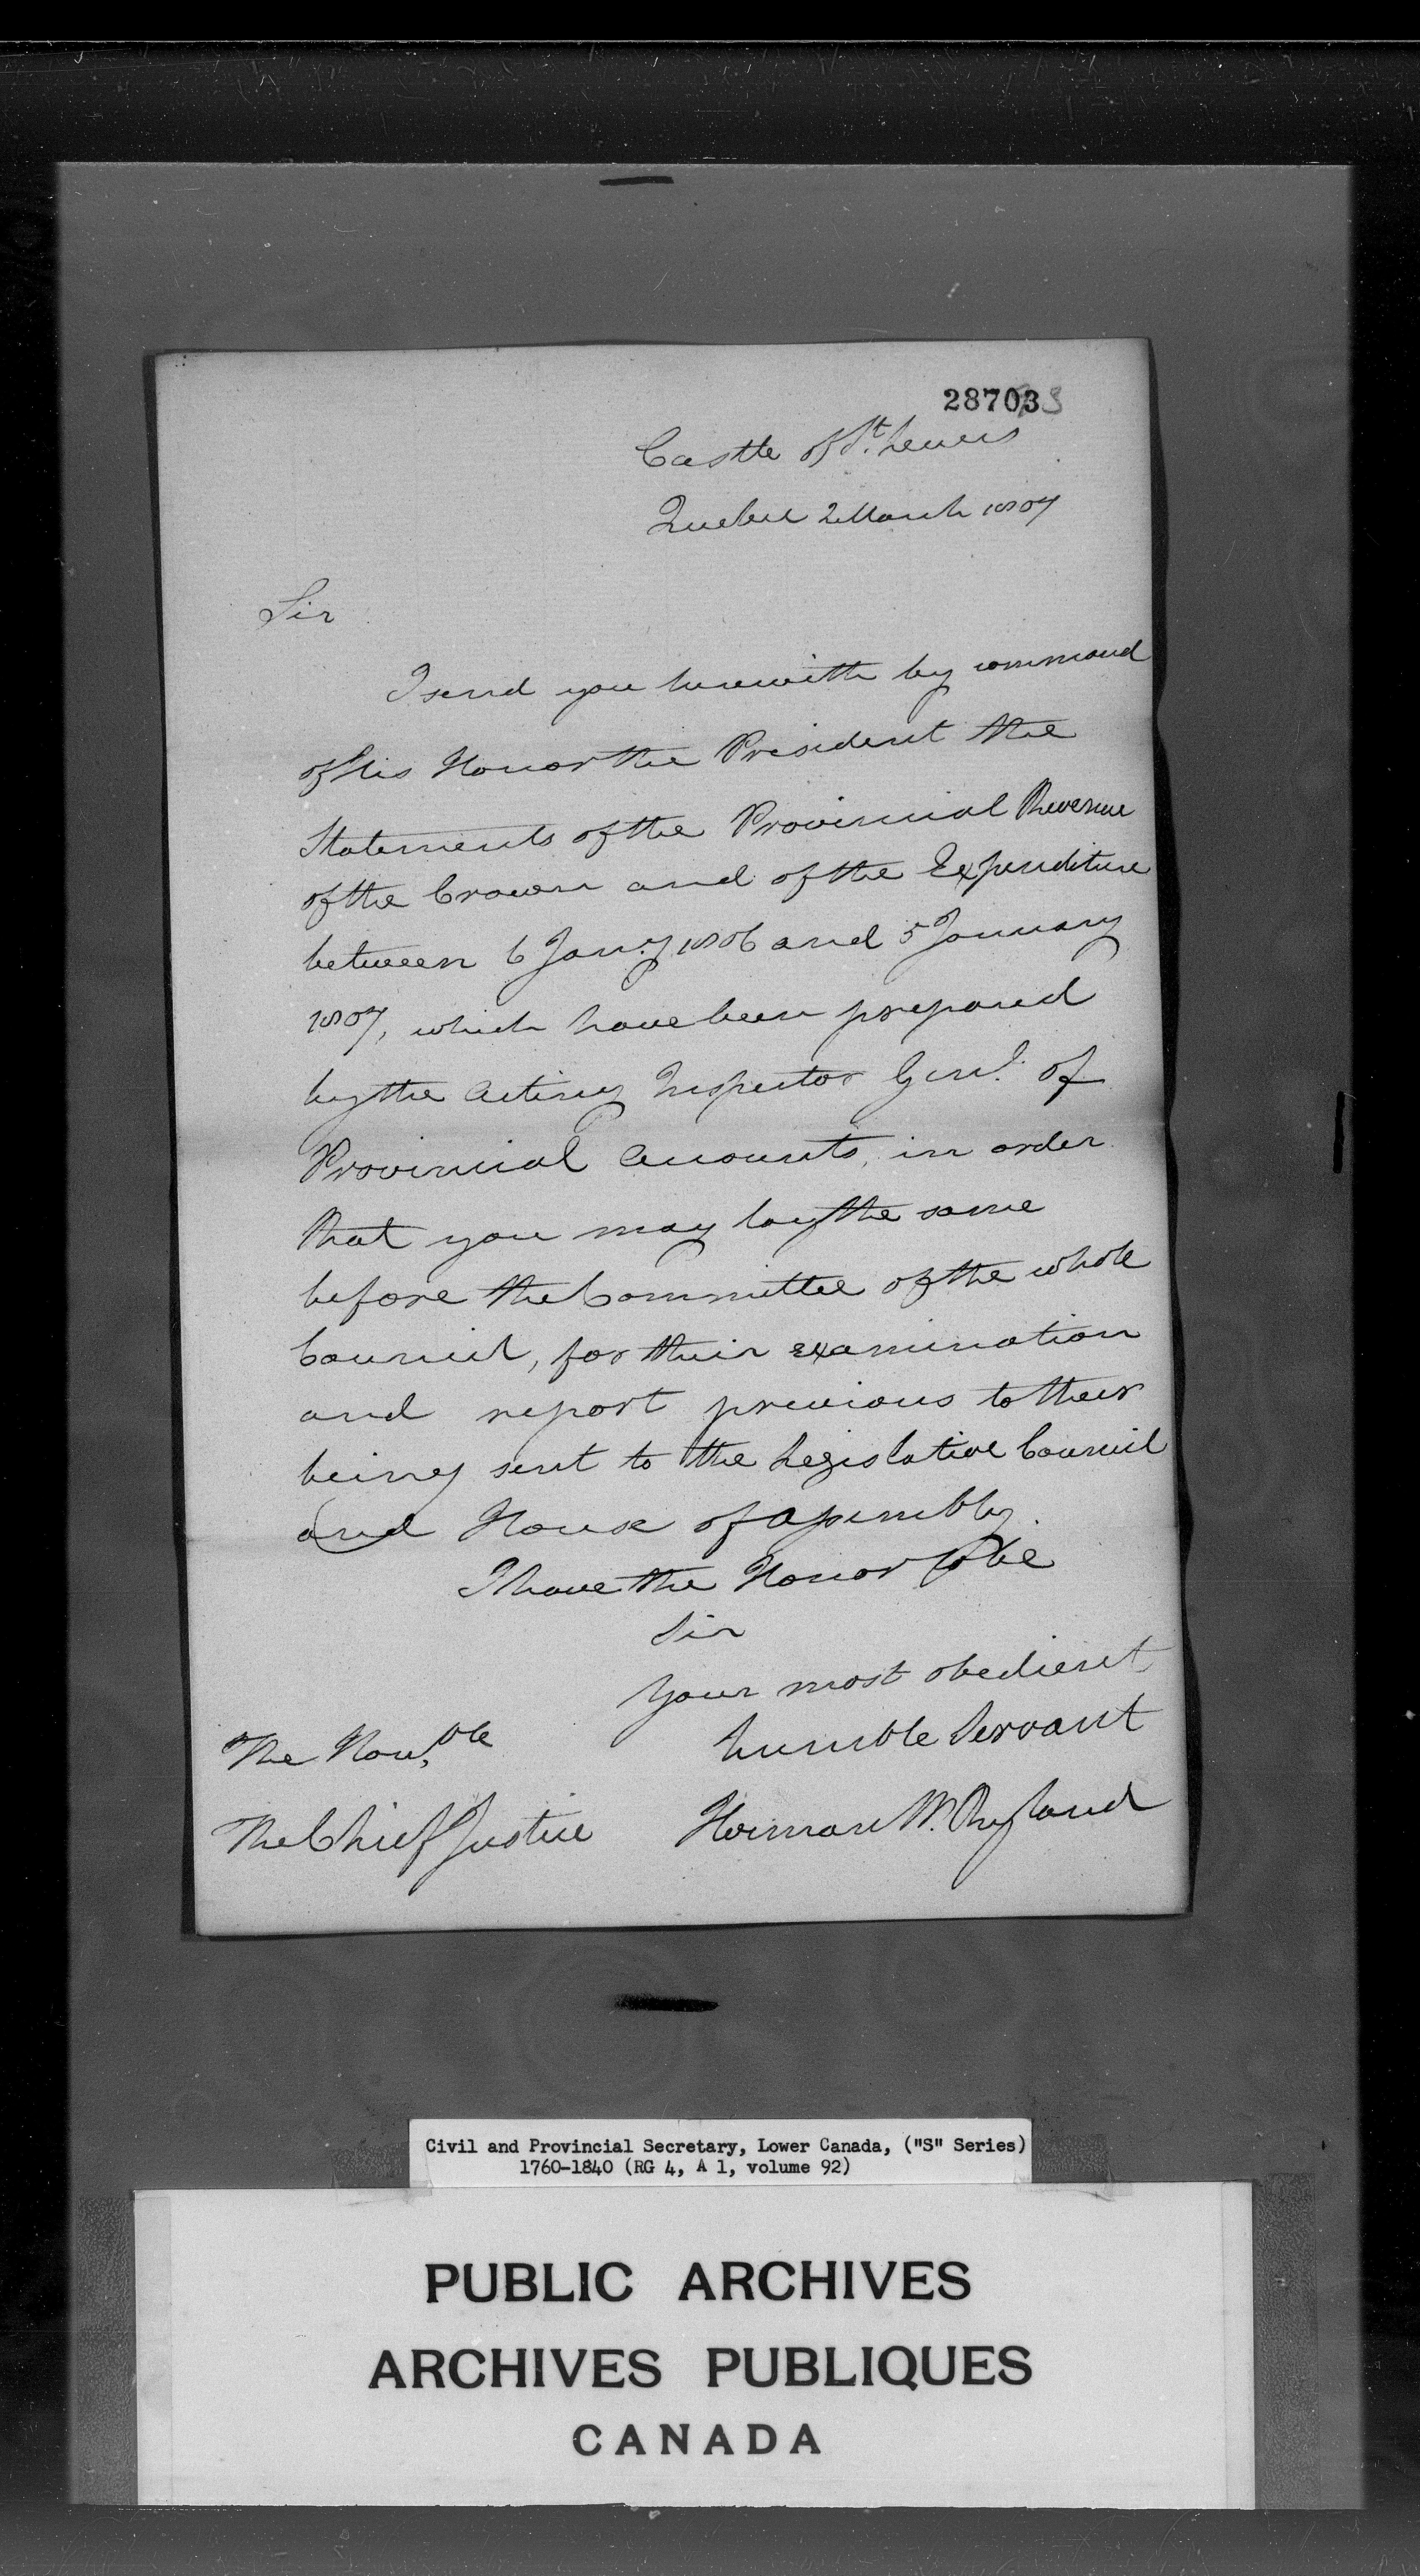 28703
Castle of St. Lewis
Quebec 2 March 1807
Sir
I send you herewith by command
of His Honor the President the
Statements of the Provincial Revenue
of the Crown and of the Expenditure
between 6 Jany. 1806 and 5 January
1807, which have been prepared
by the Acting Inspector Genl. of
Provincial Accounts, in order
that you may lay the same
before the Committee of the whole
Council, for their examination
and report previous to their
being sent to the Legislative Council
and House of Assembly.
I have the Honor to be
Sir
Your most obedient
humble Servant
The Honble
The Chief Justice
Herman W. Ryland
Civil and Provincial Secretary, Lower Canada, ("S" Series)
1760-1840 (RG 4, A 1, volume 92)
PUBLIC ARCHIVES
ARCHIVES PUBLIQUES
CANADA